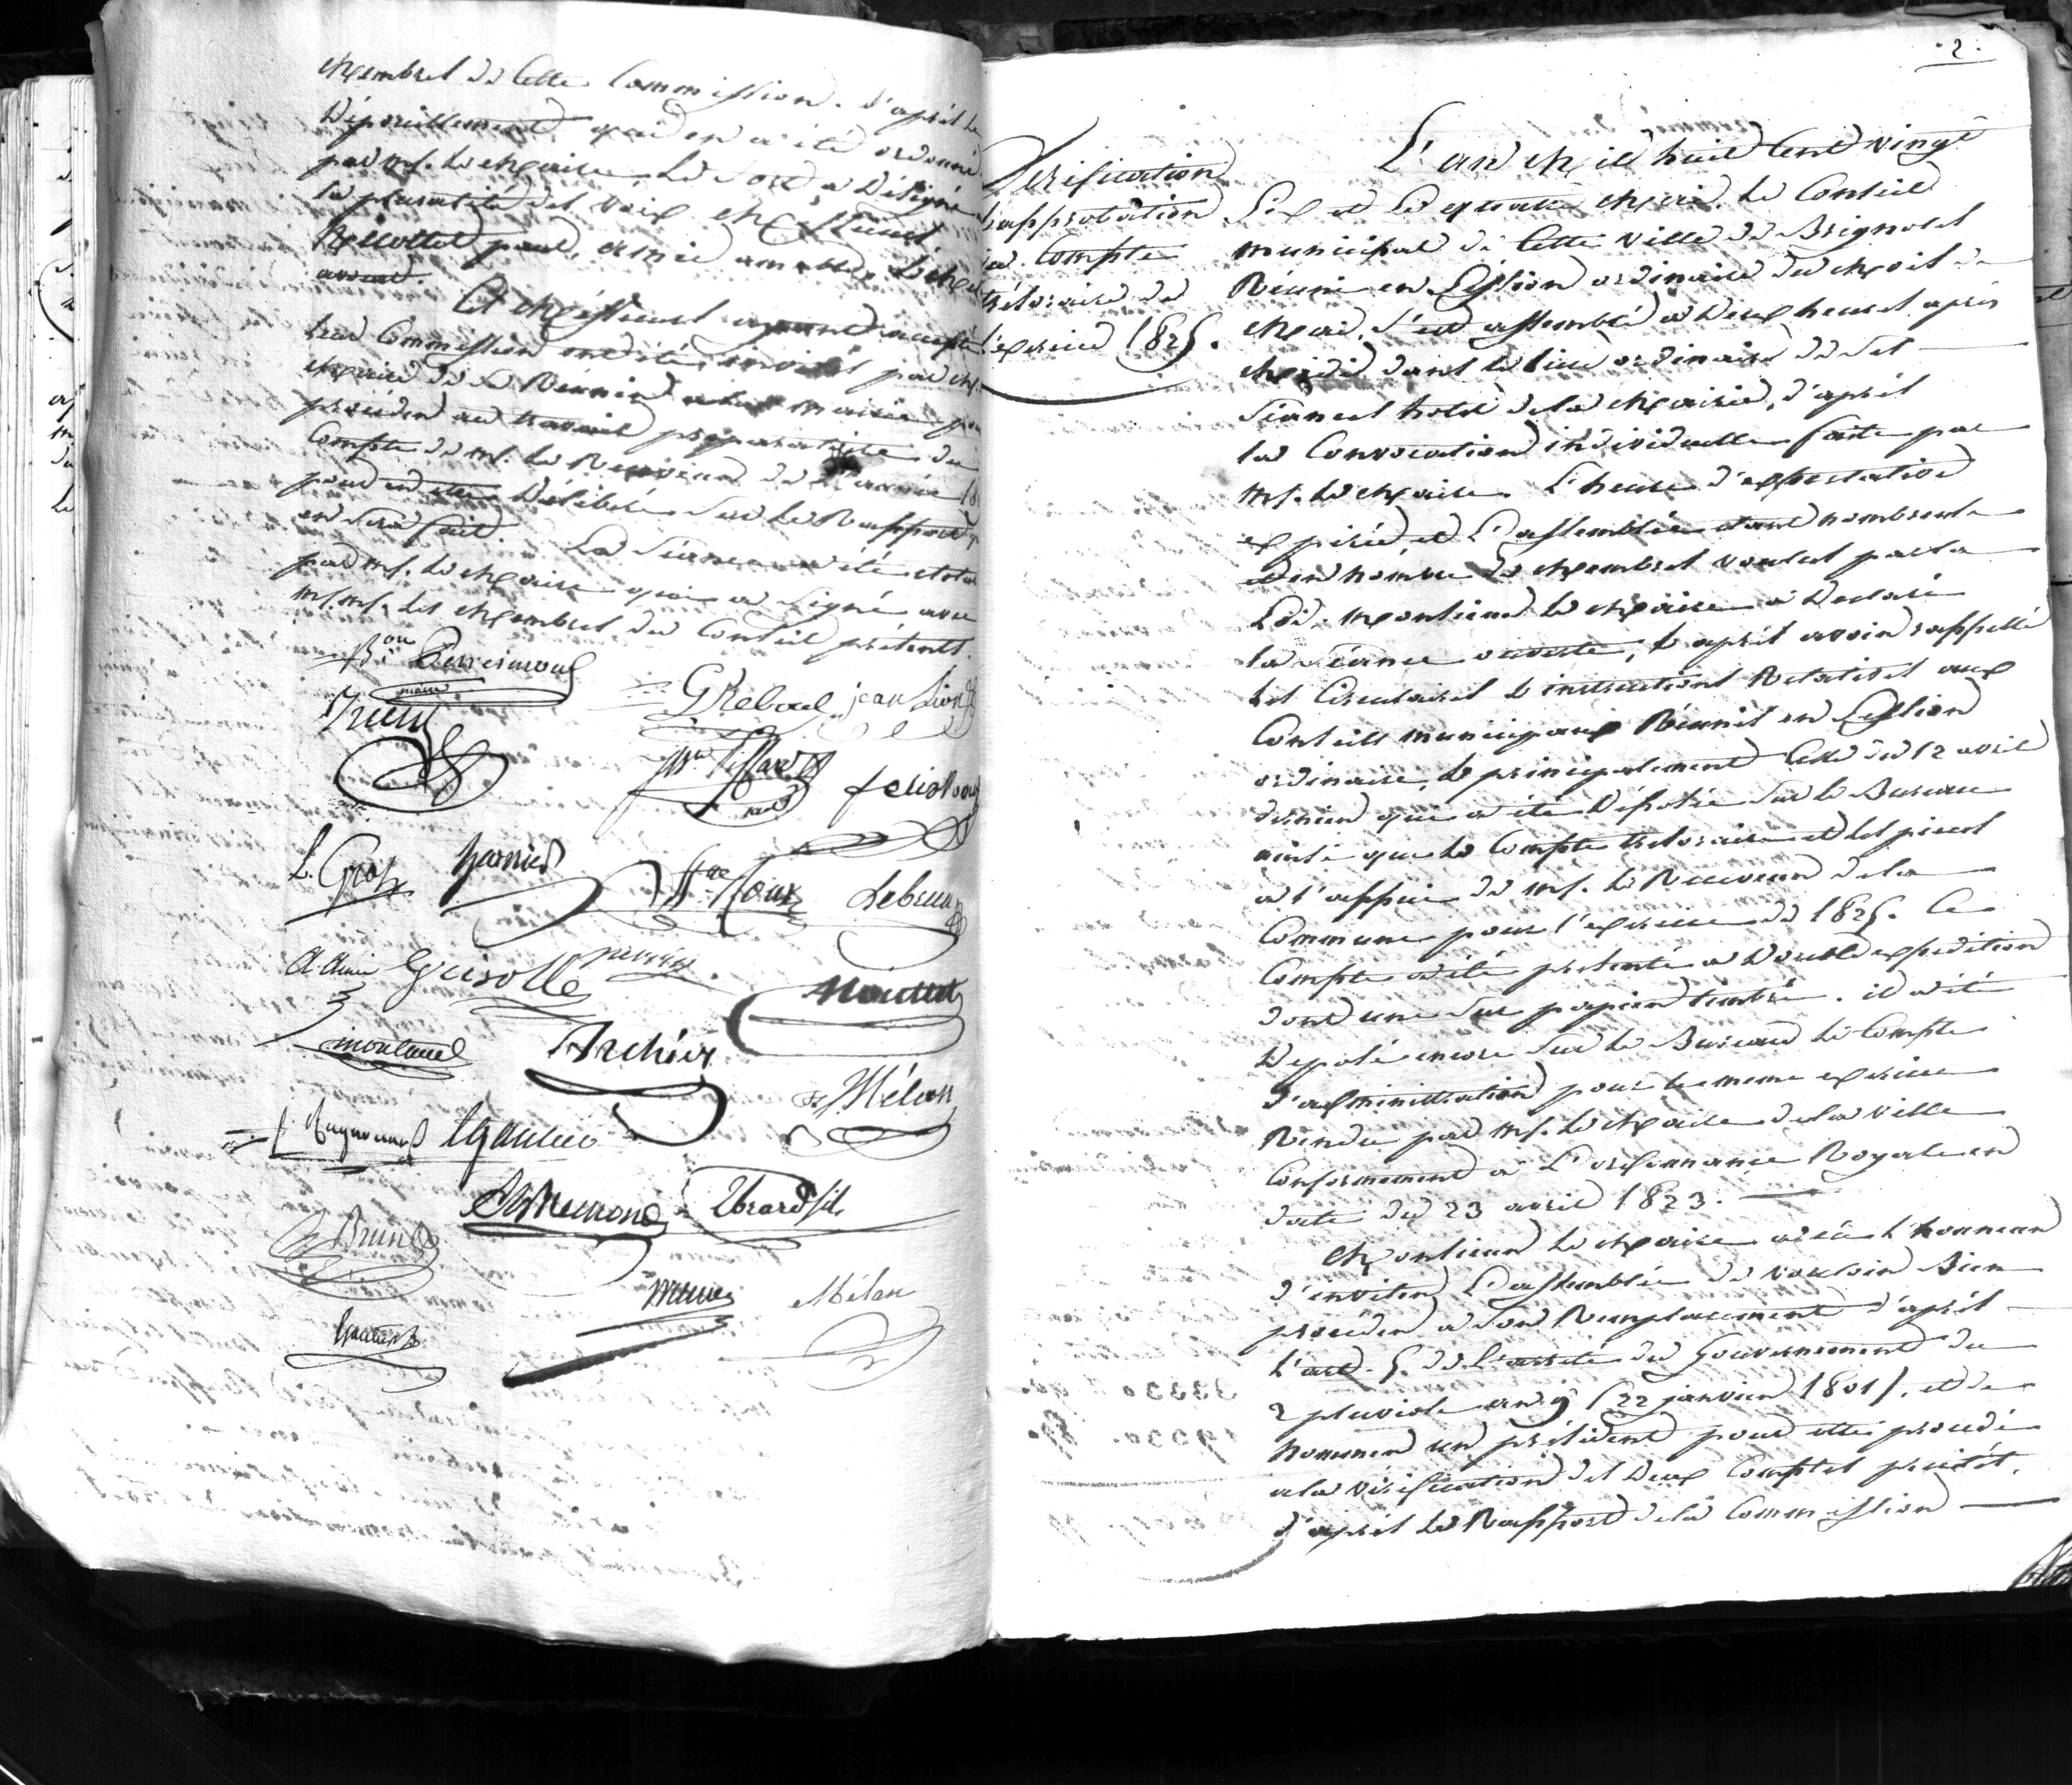 Membres de cette Commission. d'après le
Dépouillement qui en a été ordonné
par mr. le Maire, le Sort a Désigné
la pluralité des voix Messieurs
avocat.
Et Messieurs ayant accepté
leur Commission ont été invités par Mr.
Maire de se Réunir a la mairie pour
procéder au travail préparatoire du
Compte de mr. le Receveur de l'année 18
pour en être Délibéré Sur le Rapport q
en sera fait. La Séance a été
par mr. le Maire qui a Signé avec
mr.mr. les Membres du Conseil présents.
maire
G Reboul jean Lion
L. Gros Garnier Roux Lebrun
A. Amic Guisolle
Archier
Mélan
J. Brun
Maurel Mélan
Gautier
. 2 .
Vérification
& approbation
du Compte
trésoraire de
l'exercice 1825.
L'an Mil huit Cent vingt
Six et le quatre Mai, le Conseil
municipal de Cette Ville de Brignoles
Réuni en Session ordinaire du Mois de
Mai, s'est assemblé a Deux heures après
Midi dans le lieu ordinaire de ses
Séances hotel de la Mairie, d'après
la Convocation individuelle faite par
mr. le Maire. L'heure d'expectative
expirée, et L'assemblée étant nombreuse
du nombre de Membres voulus par la
Loi. Monsieur le Maire a Déclaré
la Séance ouverte, & après avoir rappellé
les Circulaires & instructions Relatives aux
Conseils municipaux Réunis en Session
ordinaire, & principalement Celle du 12 avril
dernier qui a été Déposée Sur le Bureau
ainsi que le Compte trésoraire et les pièces
a l'appui de mr. le Receveur de la
Commune pour l'exercice de 1825. Ce
Compte a été présenté a Double expedition
dont une Sur papier timbré. il a été
Déposé encore Sur le Bureau le Compte
d'administration pour le meme exercice
Rendu par mr. le Maire de la Ville
Conformement a L'ordonnance Royale en
date du 23 avril 1823.
Monsieur le Maire a eu l'honneur
d'inviter L'assemblée de vouloir Bien
procéder a son Remplacement d'après
L'art. 5. de L'arrêté du Gouvernement du
2 pluviose an 9 (22 janvier 1801). et de
Nommer un président pour être procédé
a la vérification des Deux Comptes précités.
d'après le Rapport de la Commission